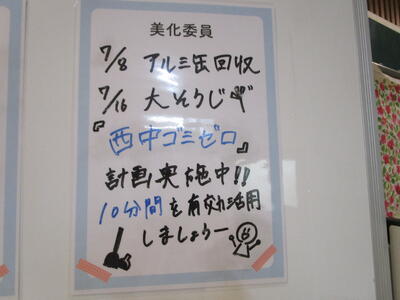 美化委員
7/8 アルミ缶回収
7/16 大そうじ
『西中ゴミゼロ』
計画実施中!!
10分間を有効活用
しましょうー